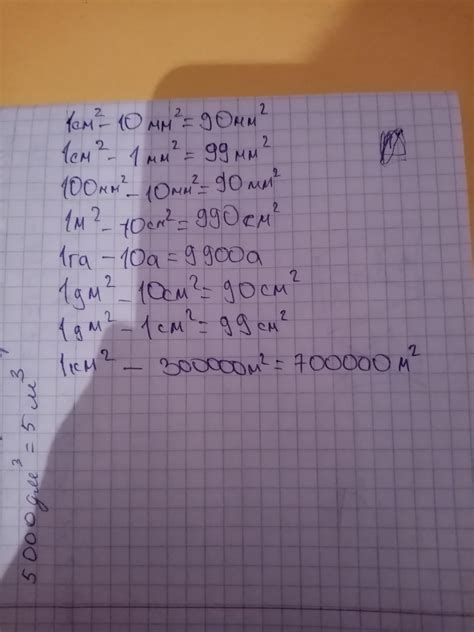 1см² - 10мм² = 90мм²
1см² - 1мм² = 99мм²
100мм² - 10мм² = 90мм²
1м² - 10см² = 990см²
1га - 10а = 9900а
1дм² - 10см² = 90см²
1дм² - 1см² = 99см²
1км² - 300000м² = 700000м²
5000дм³ = 5м³